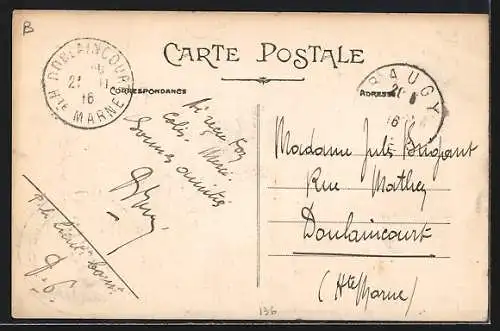 B
CARTE POSTALE
DOULAINCOURT
21
16
Hte MARNE
CORRESPONDANCE
ADRESSE
BAUGY
16
Ai reçu ton
colis. Merci.
Bonnes amitiés
Madame Jules Brigant
Rue Mathey
Doulaincourt
(Hte Marne)
136